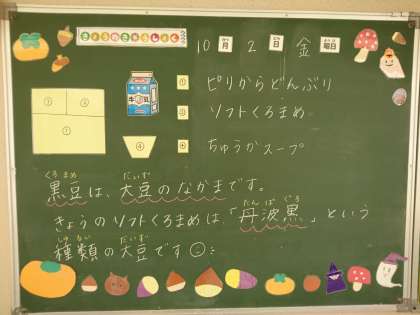 きょうのこんだて
10月2日金曜日
牛乳
① ピリからどんぶり
ソフトくろまめ
④ ちゅうかスープ
④
くろまめ だいず
黒豆は、大豆のなかまです。
たんばぐろ
きょうのソフトくろまめは、「丹波黒」という
しゅるい だいず
種類の大豆です